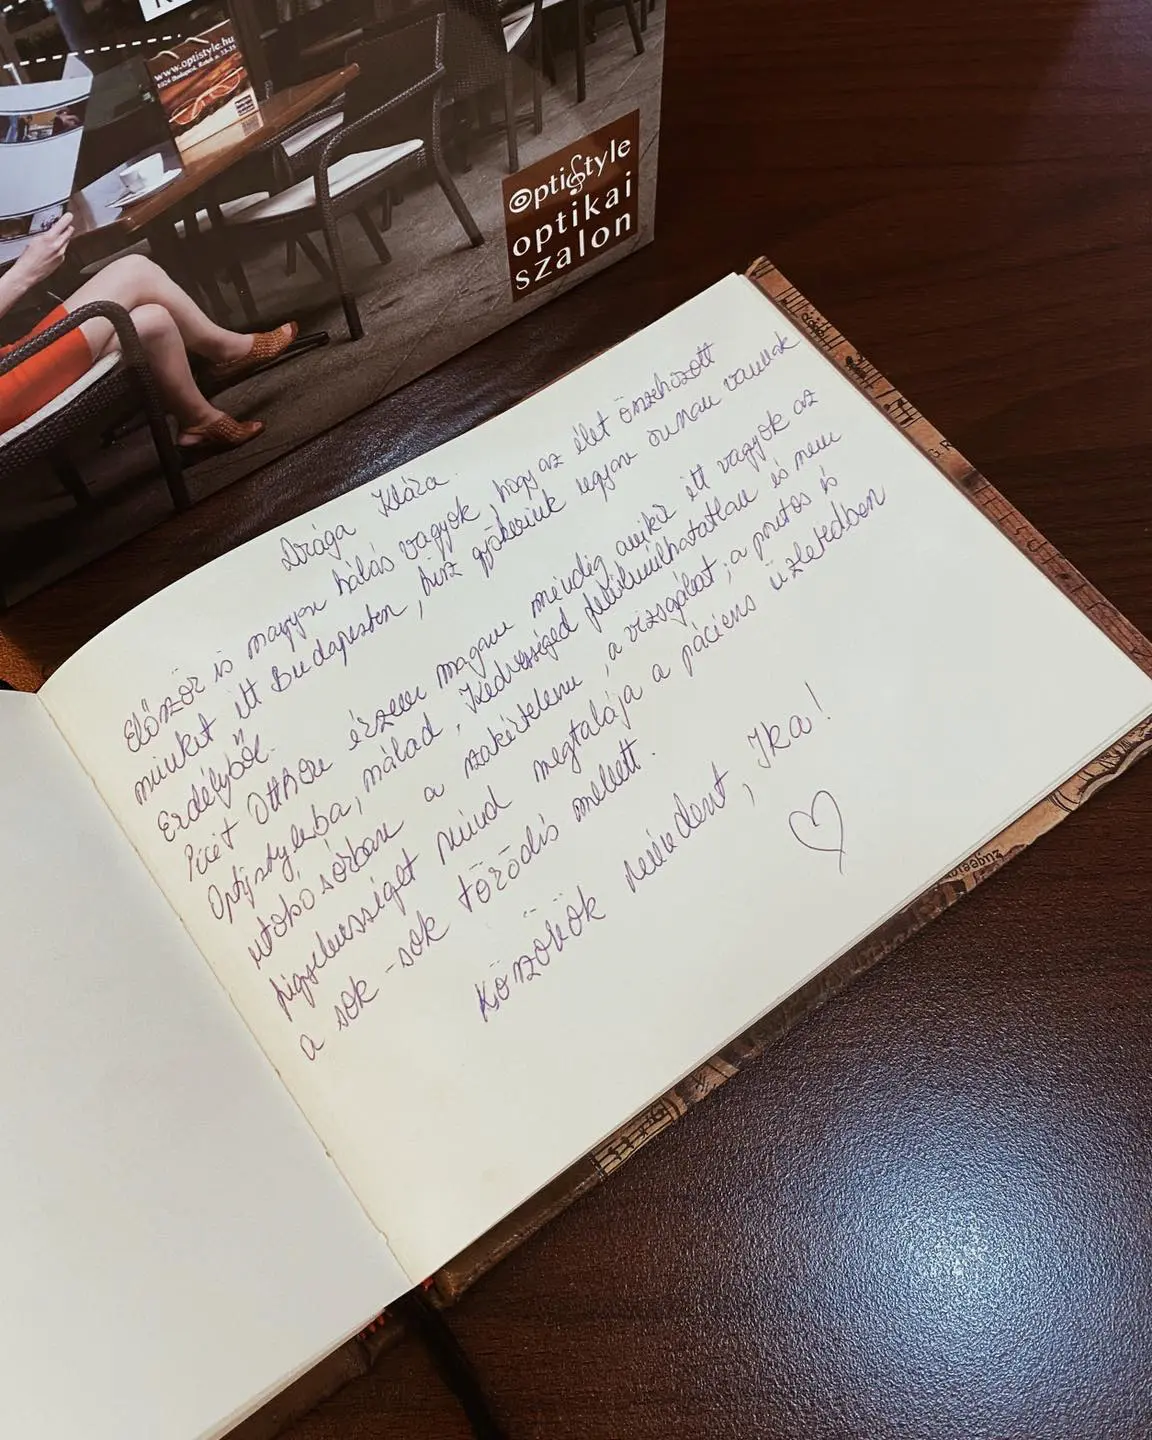 www.optistyle.hu
OptiStyle
optikai
szalon
Drága Klára
Először is nagyon hálás vagyok, hogy az élet összehozott
minket itt Budapesten, hisz gyökereink ugyan onnan vannak
Erdélyből.
Picit otthon érzem magam mindig amikor itt vagyok az
Optystyleba, nálad. Kedvességed felülmúlhatatlan és nem
utolsó sórban a szakértelem, a vizsgálat, a pontos és
figyelmességet mind megtalája a páciens üzletedben
a sok-sok törődés mellett.
Köszönök mindent, Ika!